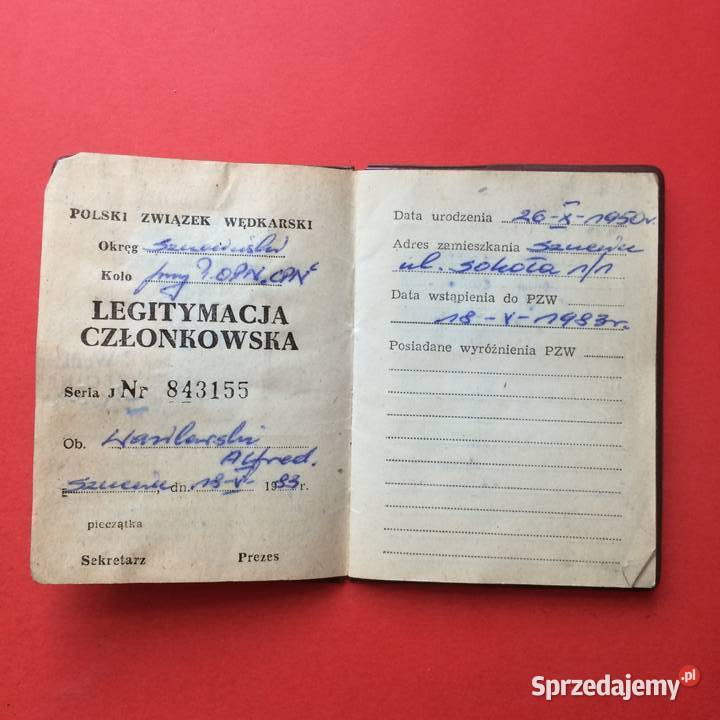 POLSKI ZWIĄZEK WĘDKARSKI
Okręg Szczeciński
Koło przy
LEGITYMACJA
CZŁONKOWSKA
Seria J Nr 843155
Ob. Wasilewski
Alfred.
Szczecin, dn. 18-V- 1983 r.
pieczątka
Sekretarz Prezes
Data urodzenia 26-X-1950r.
Adres zamieszkania Szczecin
ul. Sokoła 1/1
Data wstąpienia do PZW
18-V-1983r.
Posiadane wyróżnienia PZW
Sprzedajemy.pl